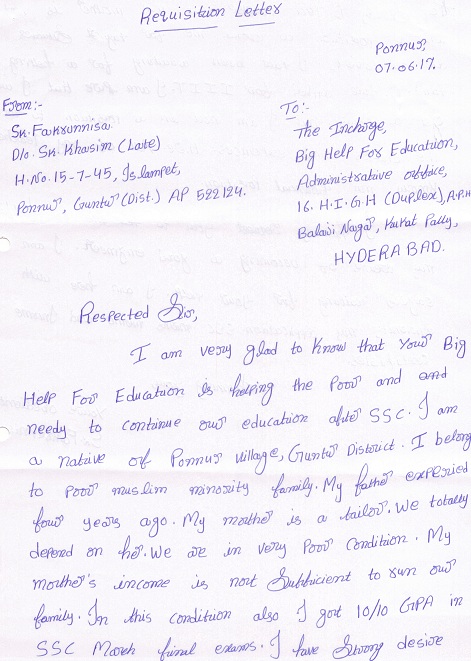 Requisition Letter
Ponnur,
07.06.17.
From:-
Sk. Fakrunnisa.
D/o. Sk. Khasim (Late)
H.No. 15-7-45, Islampet,
Ponnur, Guntur (Dist.) AP 522124.
To:-
The Incharge,
Big Help For Education,
Administrative office,
16. H.I.G.H (Duplex), A.P.H
Balaji Nagar, Kukat Pally,
HYDERABAD.
Respected Sir,
I am very glad to know that your Big
Help For Education is helping the poor and and
needy to continue our education after SSC. I am
a native of Ponnur village, Guntur District. I belong
to poor muslim minority family. My father experied
four years ago. My morther is a tailor. We totally
depend on her. We are in very poor condition. My
morther's income is not sufficient to run our
family. In this condition also I got 10/10 GPA in
SSC March final exams. I have strong desire